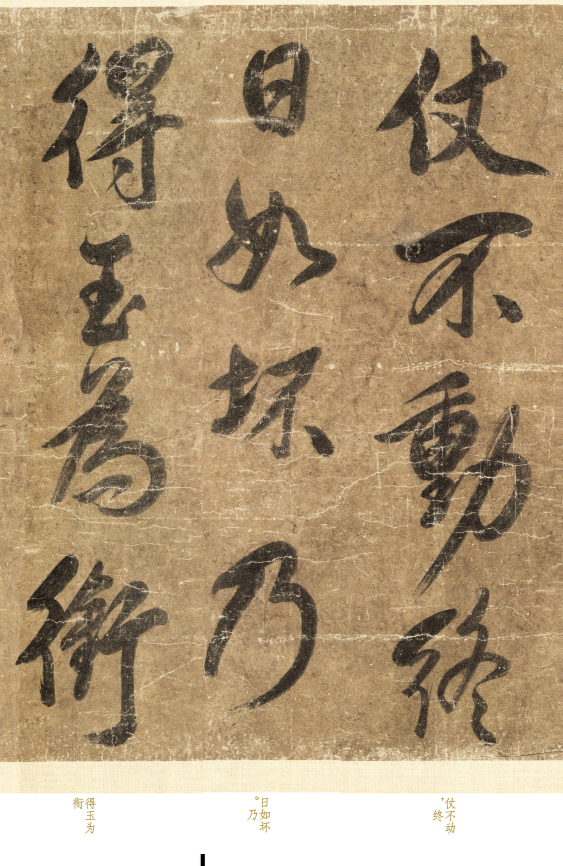 仗不動終
日如坏乃
得玉為銜
仗不动
，终
日如坏
。乃
得玉为
衔